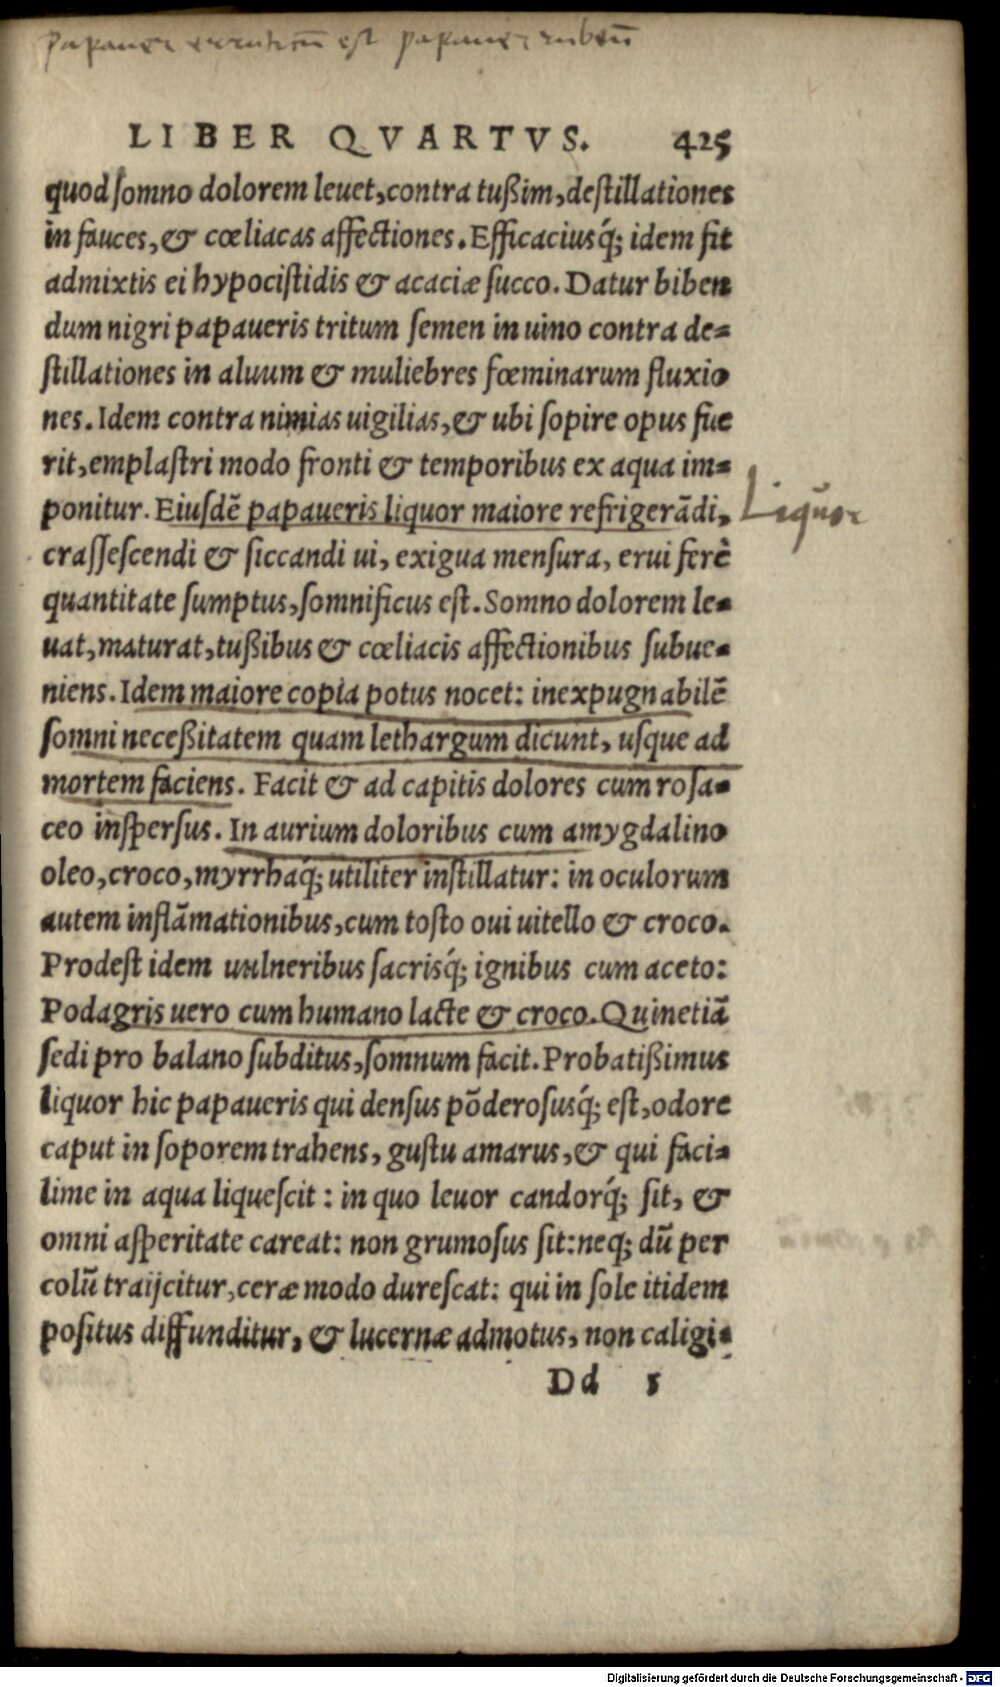 papauer erraticū est papauer rubeū
LIBER QVARTVS. 425
quod ſomno dolorem leuet, contra tußim, deſtillationes
in fauces, & cœliacas affectiones. Efficaciusq́; idem fit
admixtis ei hypociſtidis & acaciæ ſucco. Datur biben
dum nigri papaueris tritum ſemen in uino contra de=
ſtillationes in aluum & muliebres fœminarum fluxio
nes. Idem contra nimias uigilias, & ubi ſopire opus fue
rit, emplaſtri modo fronti & temporibus ex aqua im=
ponitur. Eiuſdē papaueris liquor maiore refrigerādi,
Liquor
craſſeſcendi & ſiccandi ui, exigua menſura, erui ferè
quantitate ſumptus, ſomnificus eſt. Somno dolorem le=
uat, maturat, tußibus & cœliacis affectionibus ſubue=
niens. Idem maiore copia potus nocet: inexpugnabilē
ſomni neceßitatem quam lethargum dicunt, uſque ad
mortem faciens. Facit & ad capitis dolores cum roſa=
ceo inſperſus. In aurium doloribus cum amygdalino
oleo, croco, myrrhaq́; utiliter inſtillatur: in oculorum
autem inflāmationibus, cum toſto oui uitello & croco.
Prodeſt idem uulneribus ſacrisq́; ignibus cum aceto:
Podagris uero cum humano lacte & croco. Quinetiā
ſedi pro balano ſubditus, ſomnum facit. Probatißimus
liquor hic papaueris qui denſus pōderoſusq́; eſt, odore
caput in ſoporem trahens, guſtu amarus, & qui faci=
lime in aqua liqueſcit: in quo leuor candorq́; ſit, &
omni aſperitate careat: non grumoſus ſit: neq; dū per
colū traijcitur, ceræ modo dureſcat: qui in ſole itidem
poſitus diffunditur, & lucernæ admotus, non caligi=
Dd 1
Digitalisierung gefördert durch die Deutsche Forschungsgemeinschaft - DFG